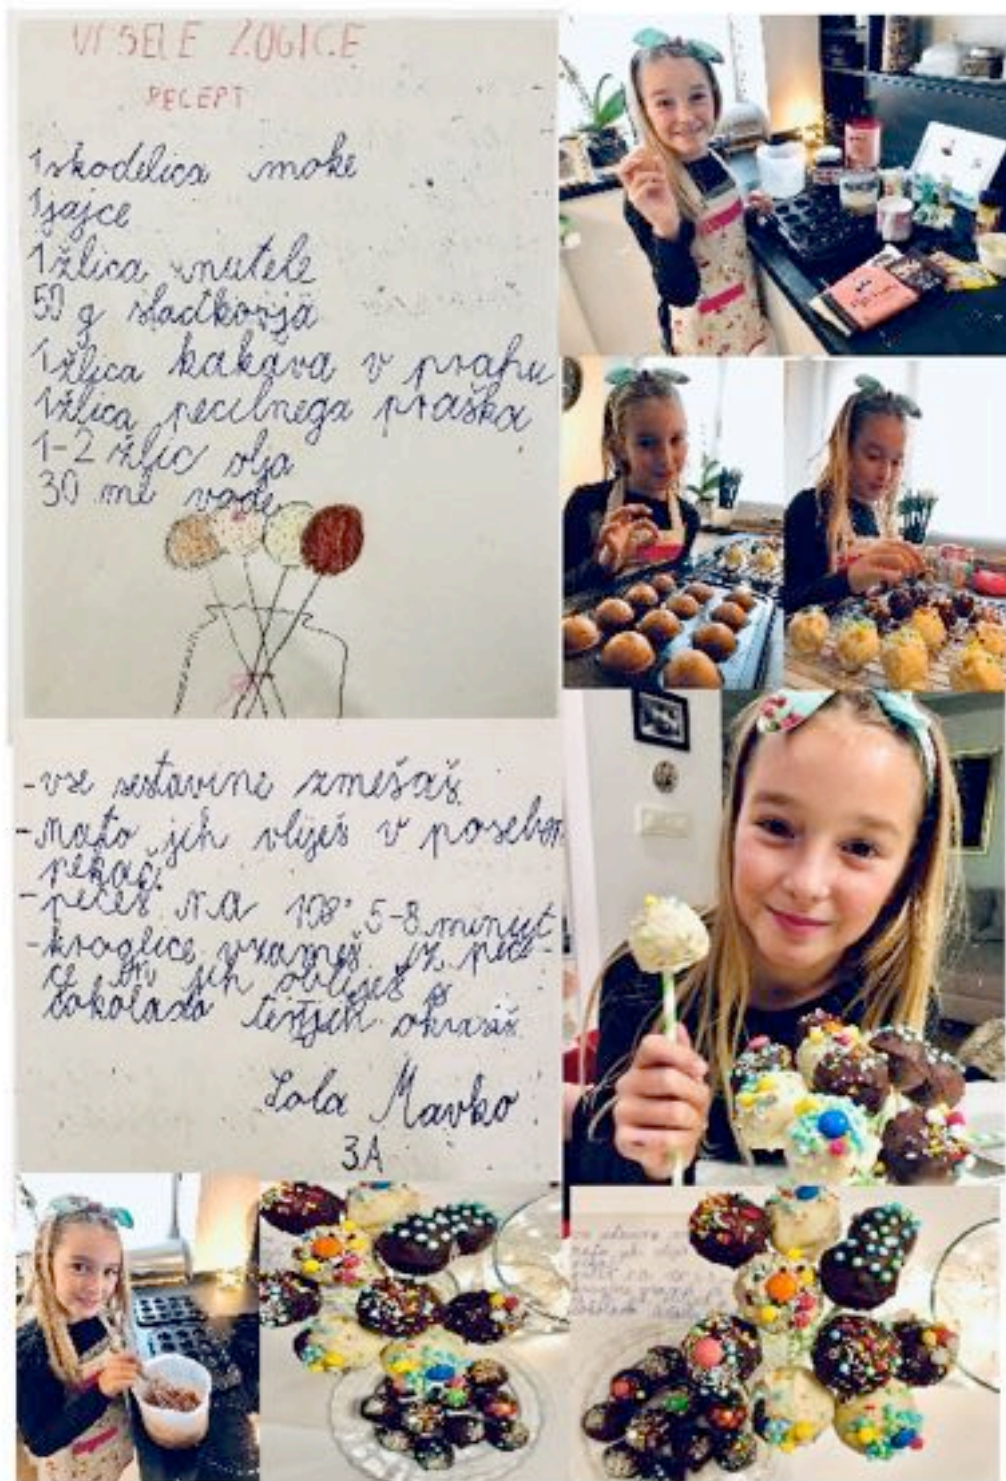 VESELE ŽOGICE
RECEPT
1 skodelica moke
1 jajce
1 žlica nutele
50 g sladkorja
1 žlica kakava v prahu
1 žlica pecilnega praška
1-2 žlic olja
30 ml vode
- vse sestavine zmešaš.
- nato jih vliješ v poseben
pekač.
- pečeš na 108° 5-8 minut
- kroglice vzameš iz peči-
ce in jih obliješ s
čokolado ter jih okrasiš.
Lola Mavko
3.A